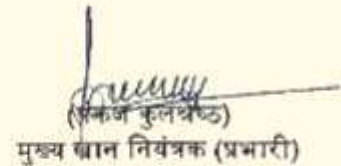 (पंकज कुलश्रेष्ठ)
मुख्य खान नियंत्रक (प्रभारी)